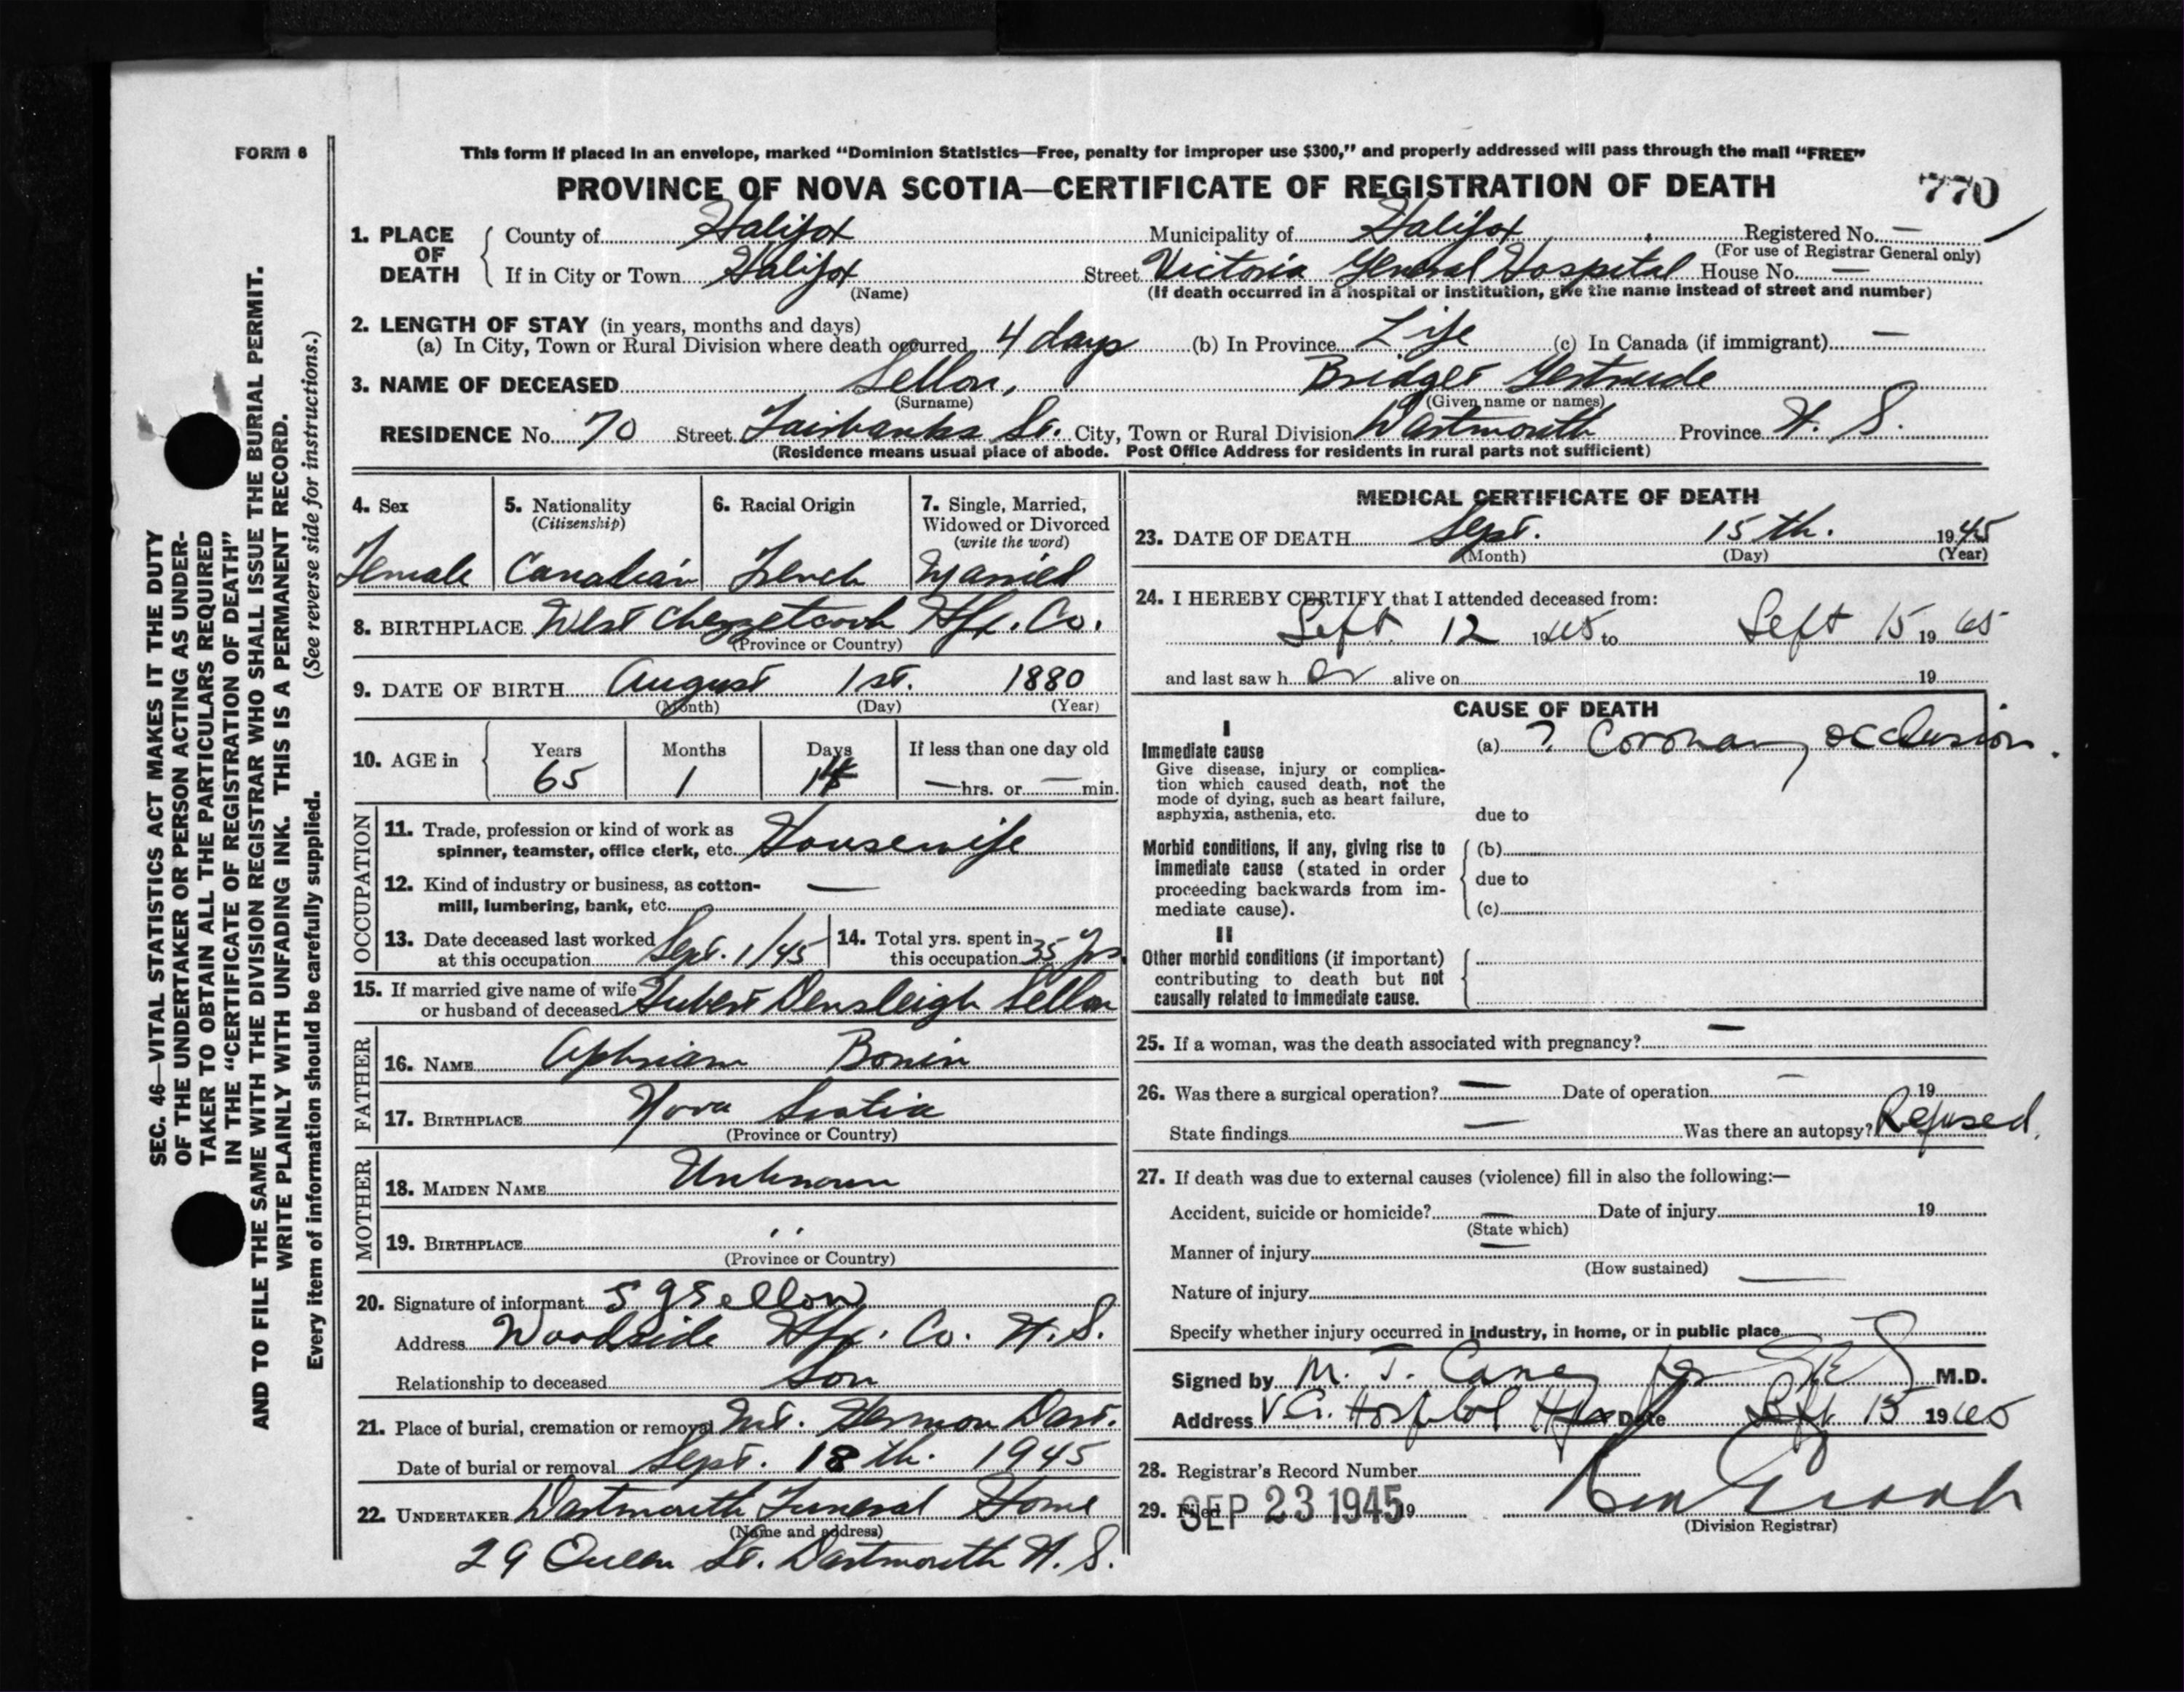 FORM 6
This form if placed in an envelope, marked "Dominion Statistics—Free, penalty for improper use $300," and properly addressed will pass through the mail "FREE"
PROVINCE OF NOVA SCOTIA—CERTIFICATE OF REGISTRATION OF DEATH 770
1. PLACE OF DEATH County of Halifax Municipality of Halifax Registered No. —
(For use of Registrar General only)
If in City or Town Halifax Street Victoria General Hospital House No. —
(Name) (If death occurred in a hospital or institution, give the name instead of street and number)
2. LENGTH OF STAY (in years, months and days)
(a) In City, Town or Rural Division where death occurred 4 days (b) In Province Life (c) In Canada (if immigrant) —
3. NAME OF DECEASED Sellon, Bridget Gertrude
(Surname) (Given name or names)
RESIDENCE No. 70 Street Fairbanks St. City, Town or Rural Division Dartmouth Province N. S.
(Residence means usual place of abode. Post Office Address for residents in rural parts not sufficient)
4. Sex 5. Nationality (Citizenship) 6. Racial Origin 7. Single, Married, Widowed or Divorced (write the word)
Female Canadian French Married
8. BIRTHPLACE West Chezzetcook Hfx. Co.
(Province or Country)
9. DATE OF BIRTH August 1st. 1880
(Month) (Day) (Year)
10. AGE in Years Months Days If less than one day old
65 1 14 — hrs. or — min.
OCCUPATION
11. Trade, profession or kind of work as
spinner, teamster, office clerk, etc. Housewife
12. Kind of industry or business, as cotton-
mill, lumbering, bank, etc. —
13. Date deceased last worked at this occupation Sept. 1/45 14. Total yrs. spent in this occupation 35 yrs
15. If married give name of wife
or husband of deceased Hubert Densleigh Sellon
FATHER
16. NAME Ephriam Bonin
17. BIRTHPLACE Nova Scotia
(Province or Country)
MOTHER
18. MAIDEN NAME Unknown
19. BIRTHPLACE ''
(Province or Country)
20. Signature of informant S G Sellon
Address Woodside Hfx. Co. N.S.
Relationship to deceased Son
21. Place of burial, cremation or removal Mt. Hermon Dart.
Date of burial or removal Sept. 18th. 1945
22. UNDERTAKER Dartmouth Funeral Home
(Name and address)
29 Queen St. Dartmouth N. S.
MEDICAL CERTIFICATE OF DEATH
23. DATE OF DEATH Sept. 15th. 1945
(Month) (Day) (Year)
24. I HEREBY CERTIFY that I attended deceased from:
Sept 12 1945 to Sept 15 1945
and last saw her alive on 19
CAUSE OF DEATH
I
Immediate cause (a) ? Coronary occlusion.
Give disease, injury or complica-
tion which caused death, not the
mode of dying, such as heart failure,
asphyxia, asthenia, etc. due to
Morbid conditions, if any, giving rise to (b)
immediate cause (stated in order
proceeding backwards from im- due to
mediate cause). (c)
II
Other morbid conditions (if important)
contributing to death but not
causally related to immediate cause.
25. If a woman, was the death associated with pregnancy? —
26. Was there a surgical operation? — Date of operation — 19
State findings — Was there an autopsy? Refused.
27. If death was due to external causes (violence) fill in also the following:—
Accident, suicide or homicide? — Date of injury 19
(State which)
Manner of injury —
(How sustained)
Nature of injury —
Specify whether injury occurred in industry, in home, or in public place
Signed by M. J. Carney M.D.
Address V.G. Hospital Hfx Date Sept 15 1945
28. Registrar's Record Number
29. Filed SEP 23 1945 19
(Division Registrar)
SEC. 46—VITAL STATISTICS ACT MAKES IT THE DUTY
OF THE UNDERTAKER OR PERSON ACTING AS UNDER-
TAKER TO OBTAIN ALL THE PARTICULARS REQUIRED
IN THE "CERTIFICATE OF REGISTRATION OF DEATH"
AND TO FILE THE SAME WITH THE DIVISION REGISTRAR WHO SHALL ISSUE THE BURIAL PERMIT.
WRITE PLAINLY WITH UNFADING INK. THIS IS A PERMANENT RECORD.
Every item of information should be carefully supplied. (See reverse side for instructions.)